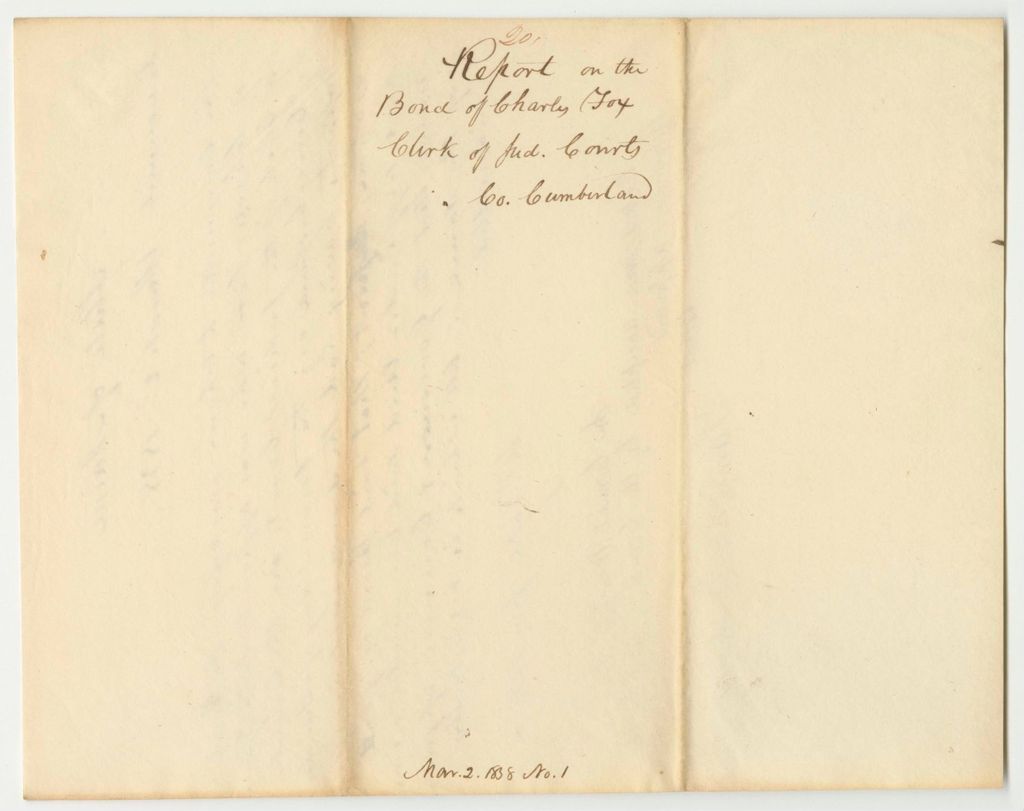 20.
Report on the
Bond of Charles Fox
Clerk of Jud. Courts
Co. Cumberland
Mar. 2. 1838 No. 1